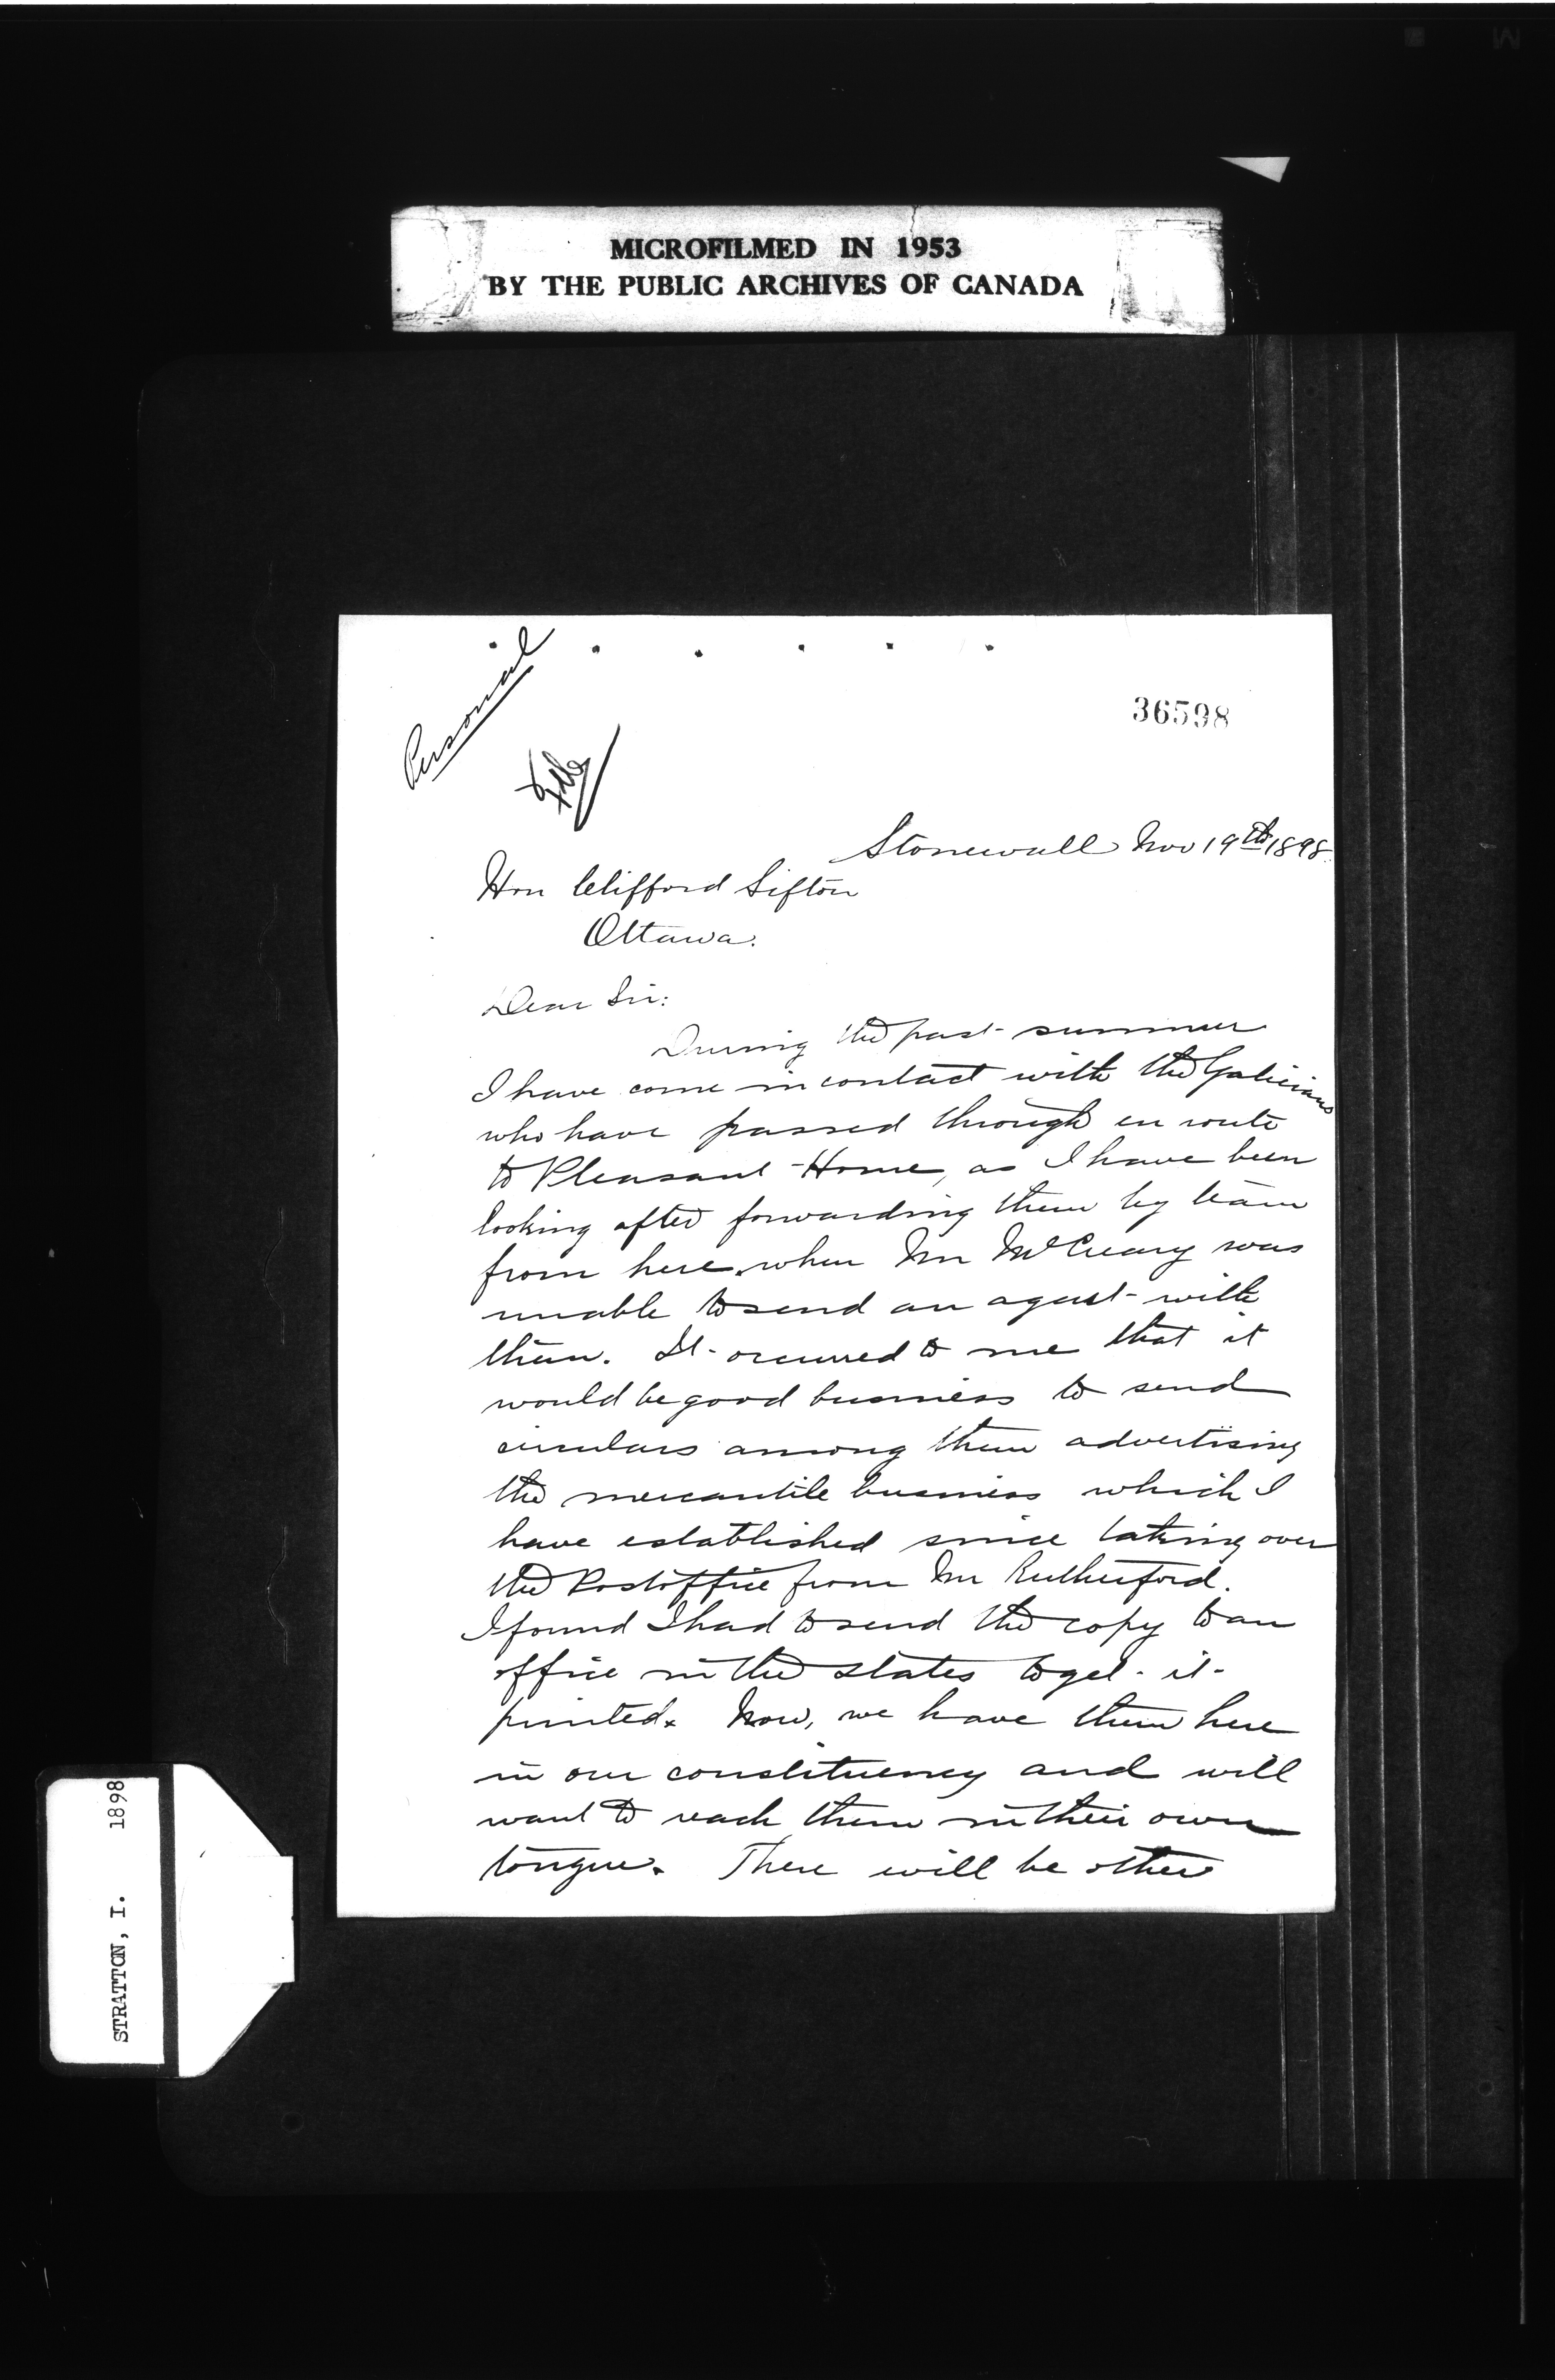 MICROFILMED IN 1953
BY THE PUBLIC ARCHIVES OF CANADA
Personal
36598
File
Stonewall Nov 19th 1898
Hon Clifford Sifton
Ottawa.
Dear Sir:
During the past summer
I have come in contact with the Galicians
who have passed through en route
to Pleasant Home, as I have been
looking after forwarding them by team
from here when Mr McCreary was
unable to send an agent with
them. It occurred to me that it
would be good business to send
circulars among them advertising
the mercantile business which I
have established since taking over
the Postoffice from Mr Rutherford.
I found I had to send the copy to an
office in the states to get it
printed. Now, we have them here
in our constituency and will
want to reach them in their own
tongue. There will be other
STRATTON, I. 1898